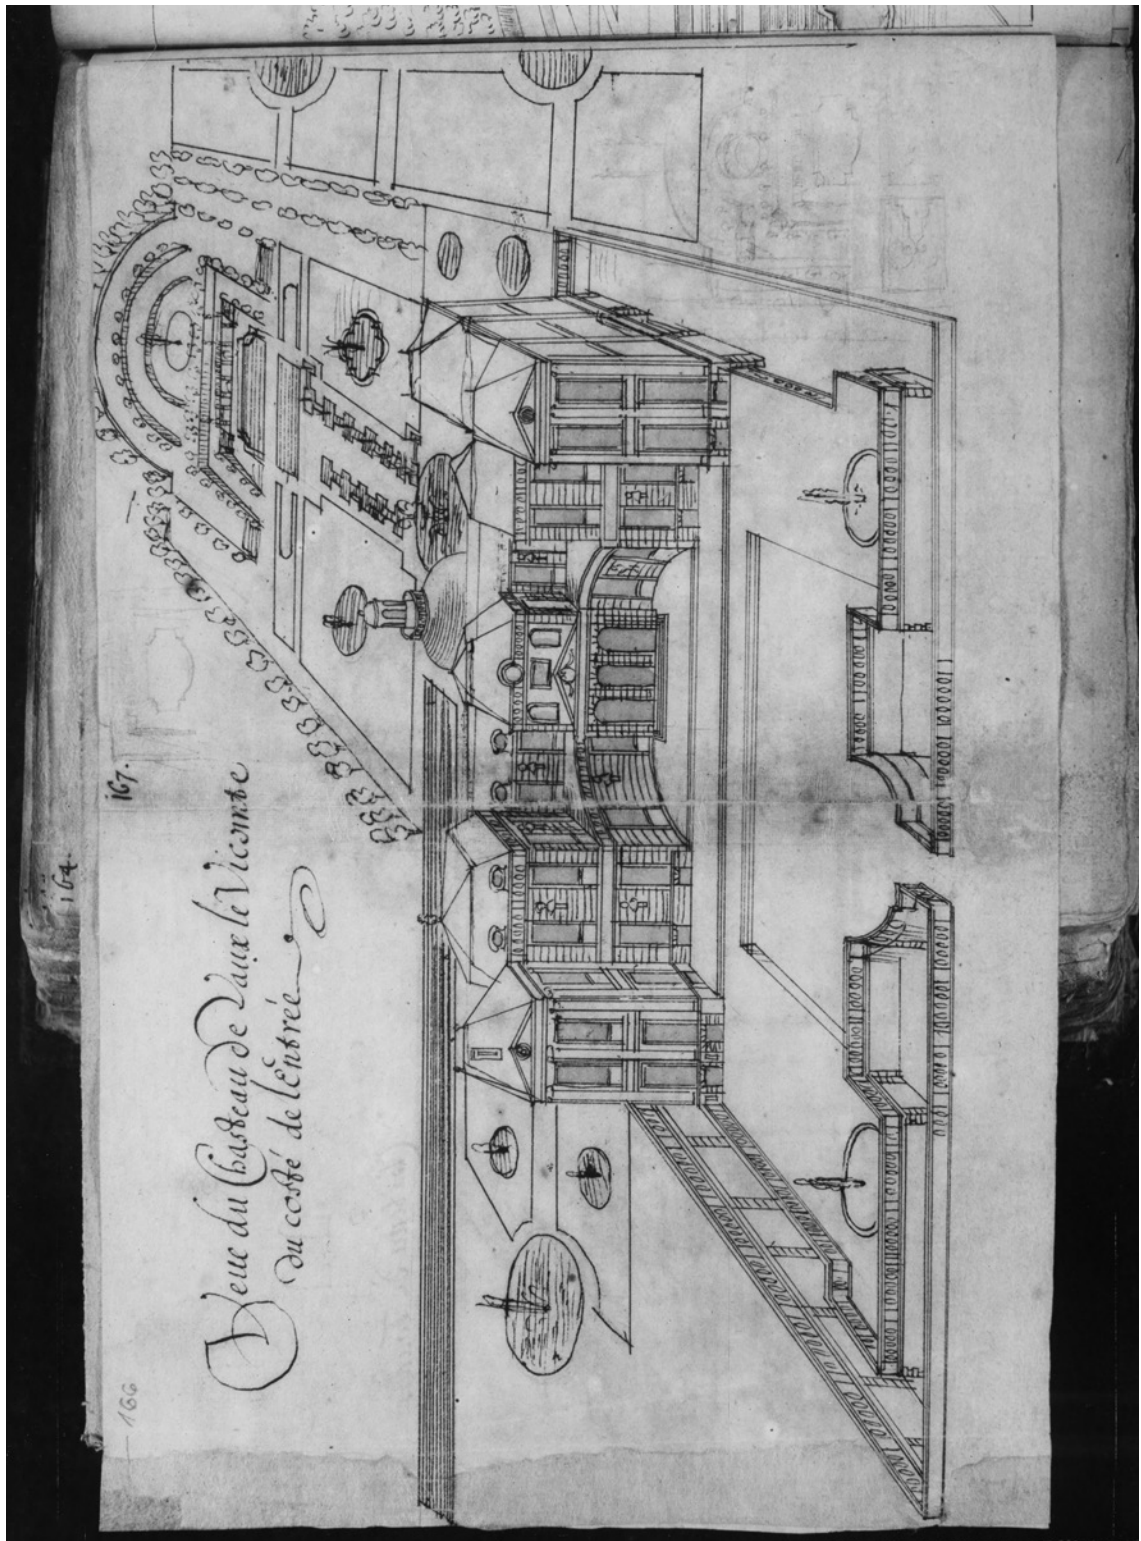 166
167.
164
Veue du Chasteau de Vaux le Vicomte
du costé de l'Entrée